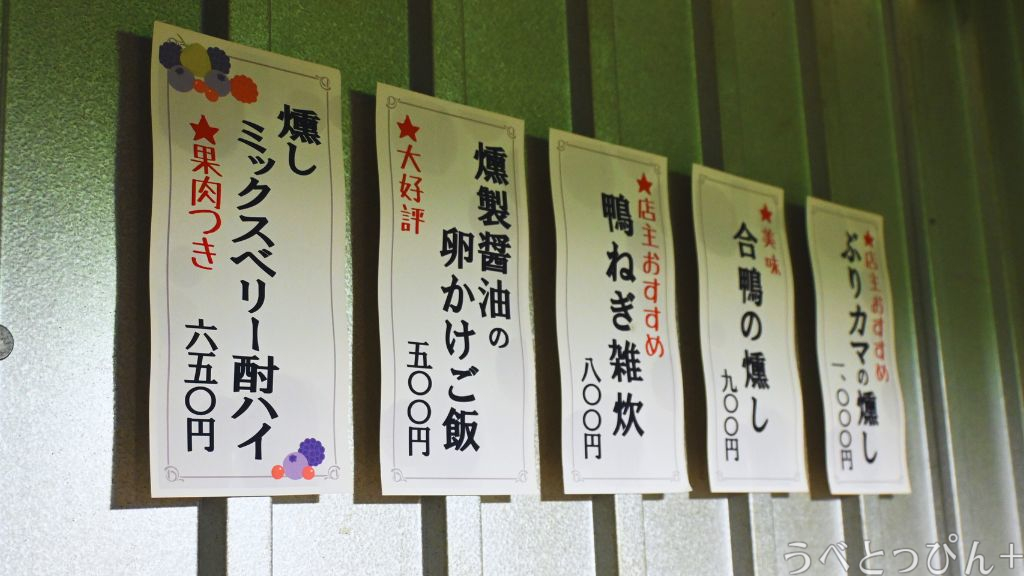 燻し
ミックスベリー酎ハイ
★果肉つき
六五〇円
燻製醤油の
卵かけご飯
★大好評
五〇〇円
★店主おすすめ
鴨ねぎ雑炊
八〇〇円
★美味
合鴨の燻し
九〇〇円
★店主おすすめ
ぶりカマの燻し
一、〇〇〇円
うべとっぴん+